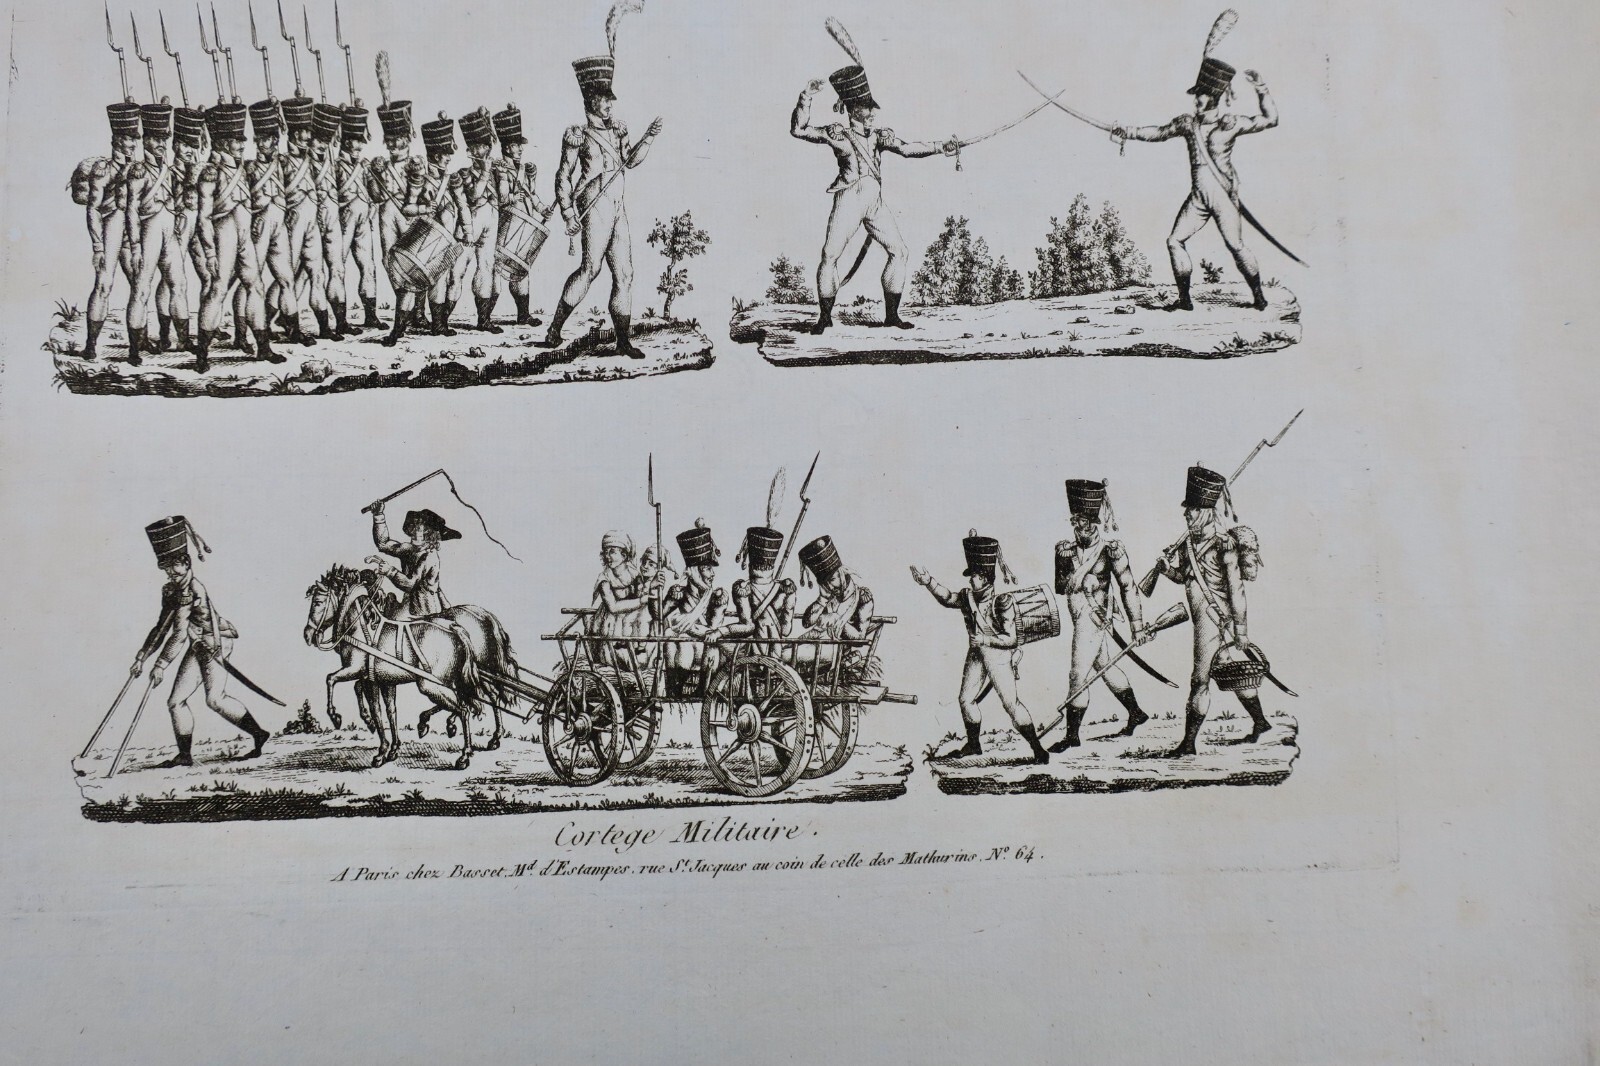 Cortege Militaire.
A Paris chez Basset, Md. d'Estampes, rue St. Jacques au coin de celle des Mathurins, No. 64.